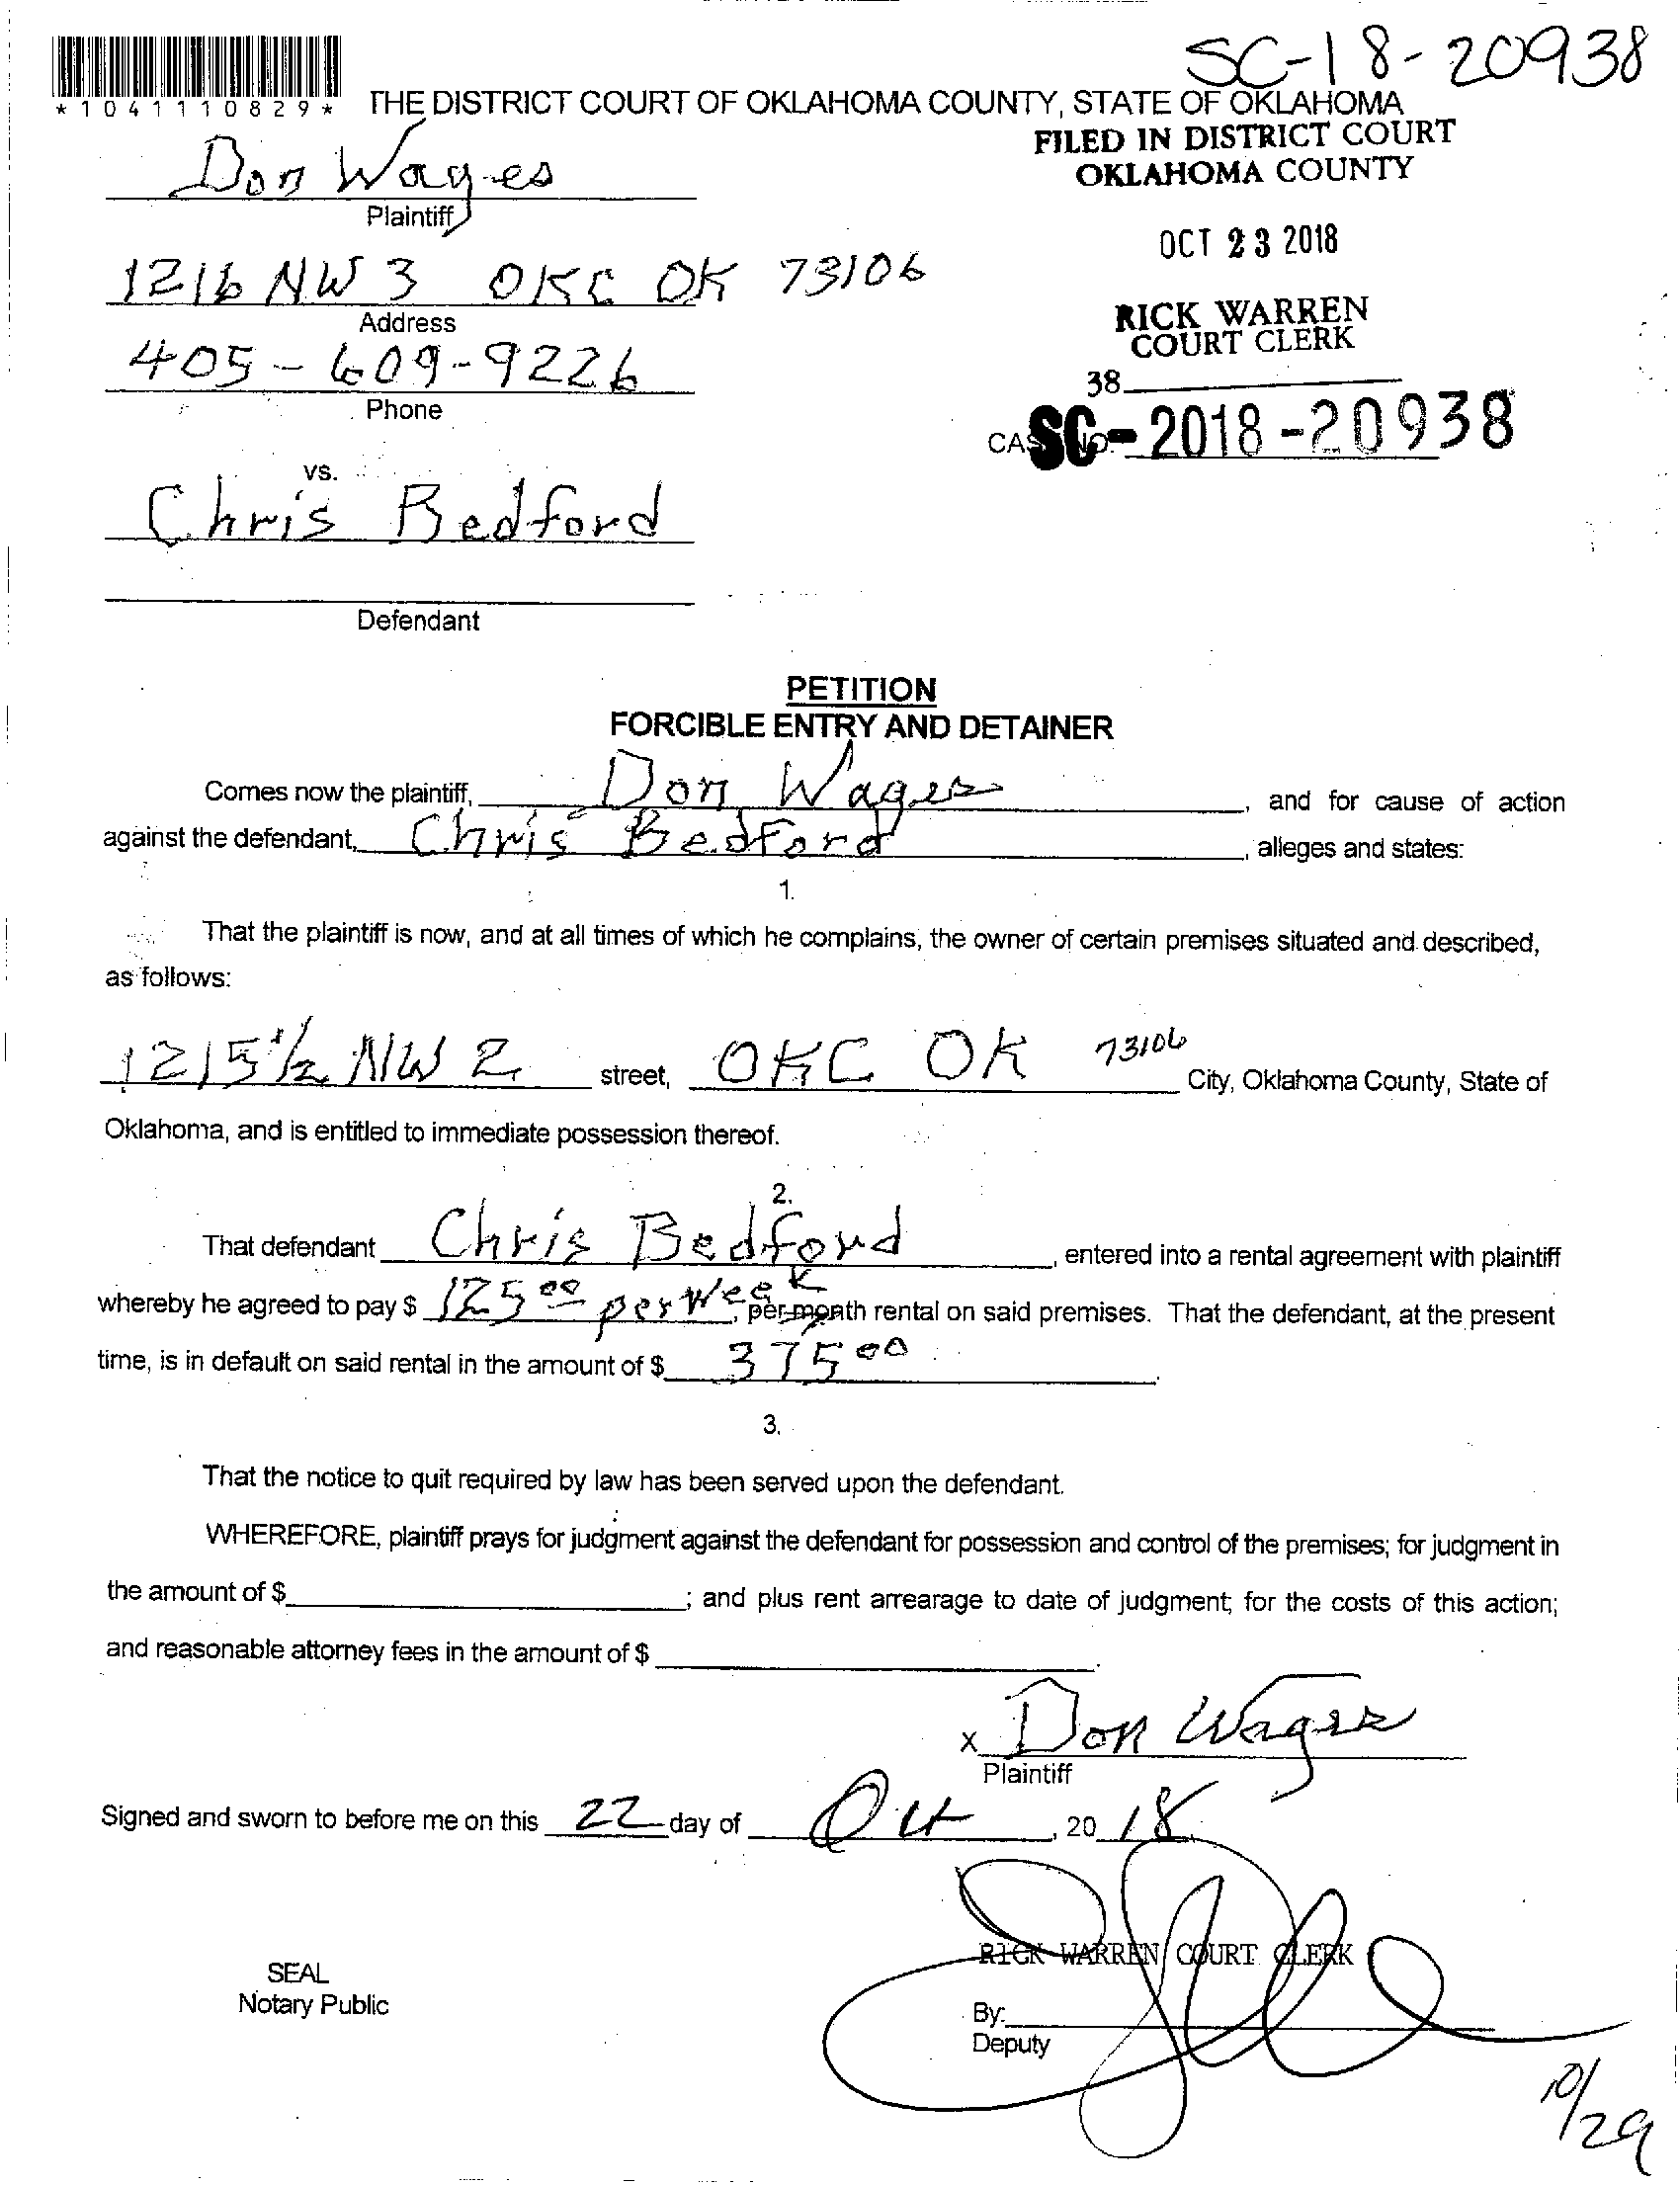 SC-18-20938
*1041110829*
THE DISTRICT COURT OF OKLAHOMA COUNTY, STATE OF OKLAHOMA
FILED IN DISTRICT COURT
OKLAHOMA COUNTY
Don Wages
Plaintiff
OCT 23 2018
1216 NW 3 OKC OK 73106
Address
RICK WARREN
COURT CLERK
405-609-9226
Phone
38
CASE NO. SC-2018-20938
vs.
Chris Bedford
Defendant
PETITION
FORCIBLE ENTRY AND DETAINER
Comes now the plaintiff, Don Wages, and for cause of action
against the defendant, Chris Bedford, alleges and states:
1.
That the plaintiff is now, and at all times of which he complains, the owner of certain premises situated and described,
as follows:
1215 1/2 NW 2 street, OKC OK 73106 City, Oklahoma County, State of
Oklahoma, and is entitled to immediate possession thereof.
2.
That defendant Chris Bedford, entered into a rental agreement with plaintiff
whereby he agreed to pay $ 125 00 per Week, per month rental on said premises. That the defendant, at the present
time, is in default on said rental in the amount of $ 375 00.
3.
That the notice to quit required by law has been served upon the defendant.
WHEREFORE, plaintiff prays for judgment against the defendant for possession and control of the premises; for judgment in
the amount of $ ; and plus rent arrearage to date of judgment; for the costs of this action;
and reasonable attorney fees in the amount of $ .
X Don Wages
Plaintiff
Signed and sworn to before me on this 22 day of Oct, 20 18
RICK WARREN COURT CLERK
SEAL
Notary Public
By:
Deputy
10/29